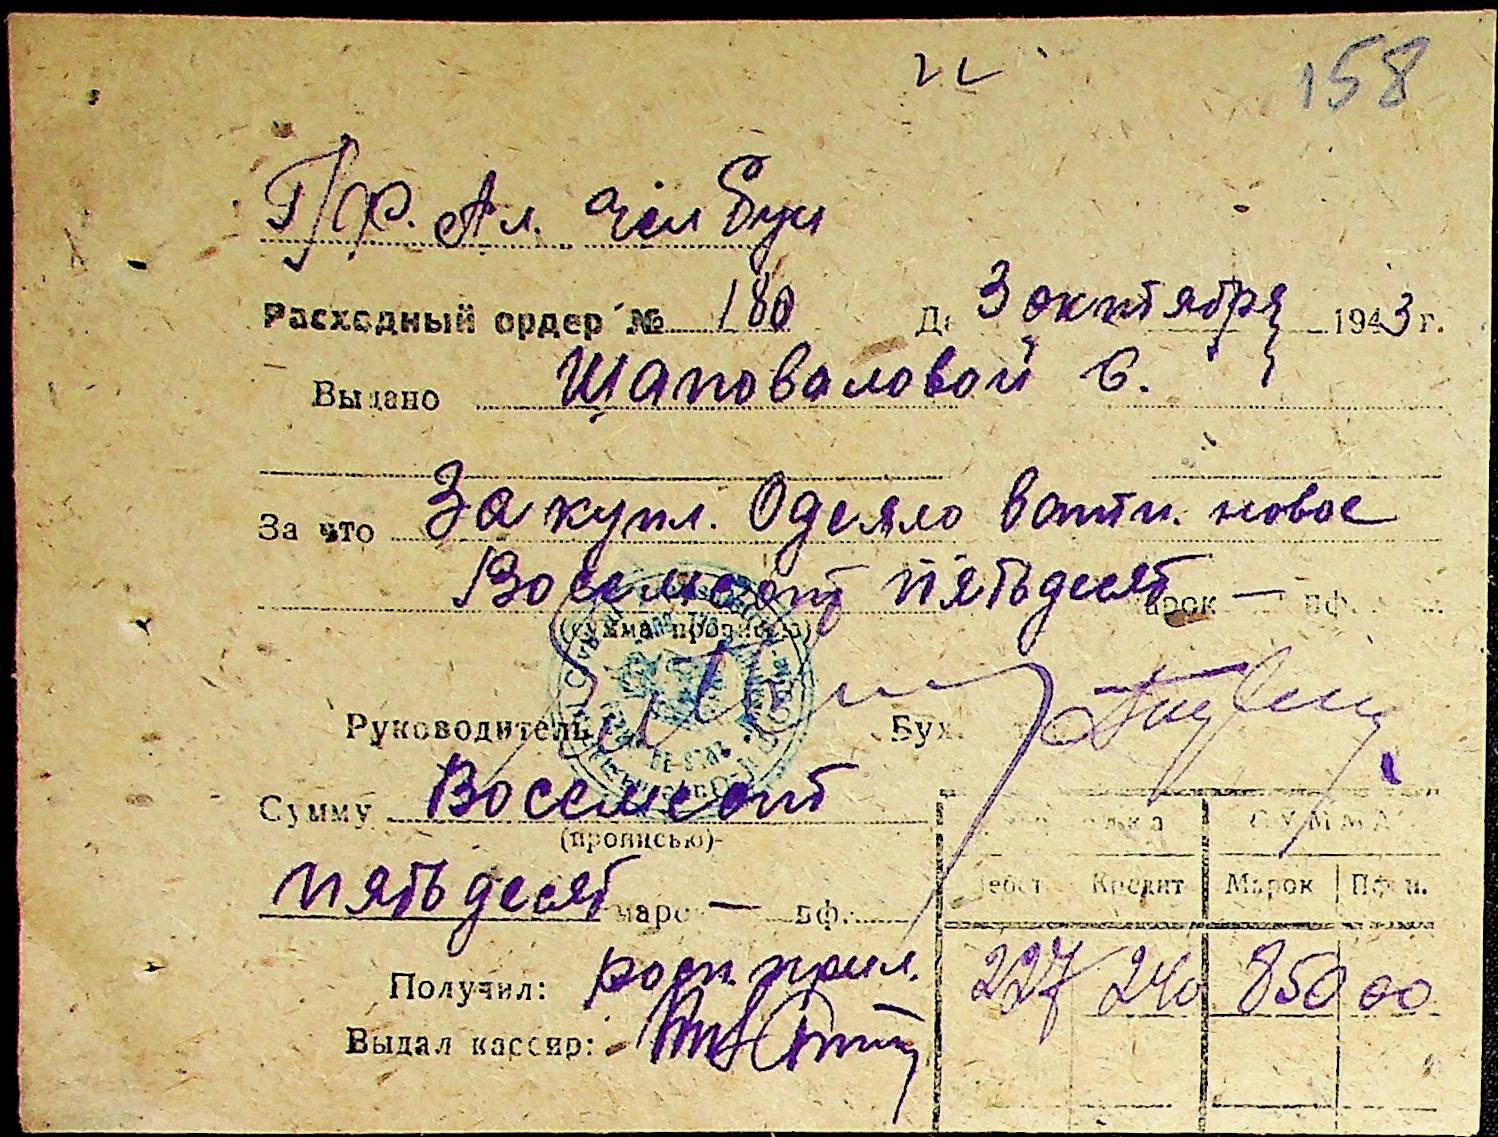 158
Расходный ордер № 180 3 октября 1943 г.
Выдано Шаповаловой С.
За что За купл. Одеяло ватн. новое
Восемсот пятьдесят марок — пф.
(сумма прописью)
Руководитель Бух.
Сумму Восемсот
(прописью)
пятьдесят марок — пф.
Дебет Кредит Марок Пфен.
СУММА
Получил: росп. прил.
227 240 850 00
Выдал кассир: